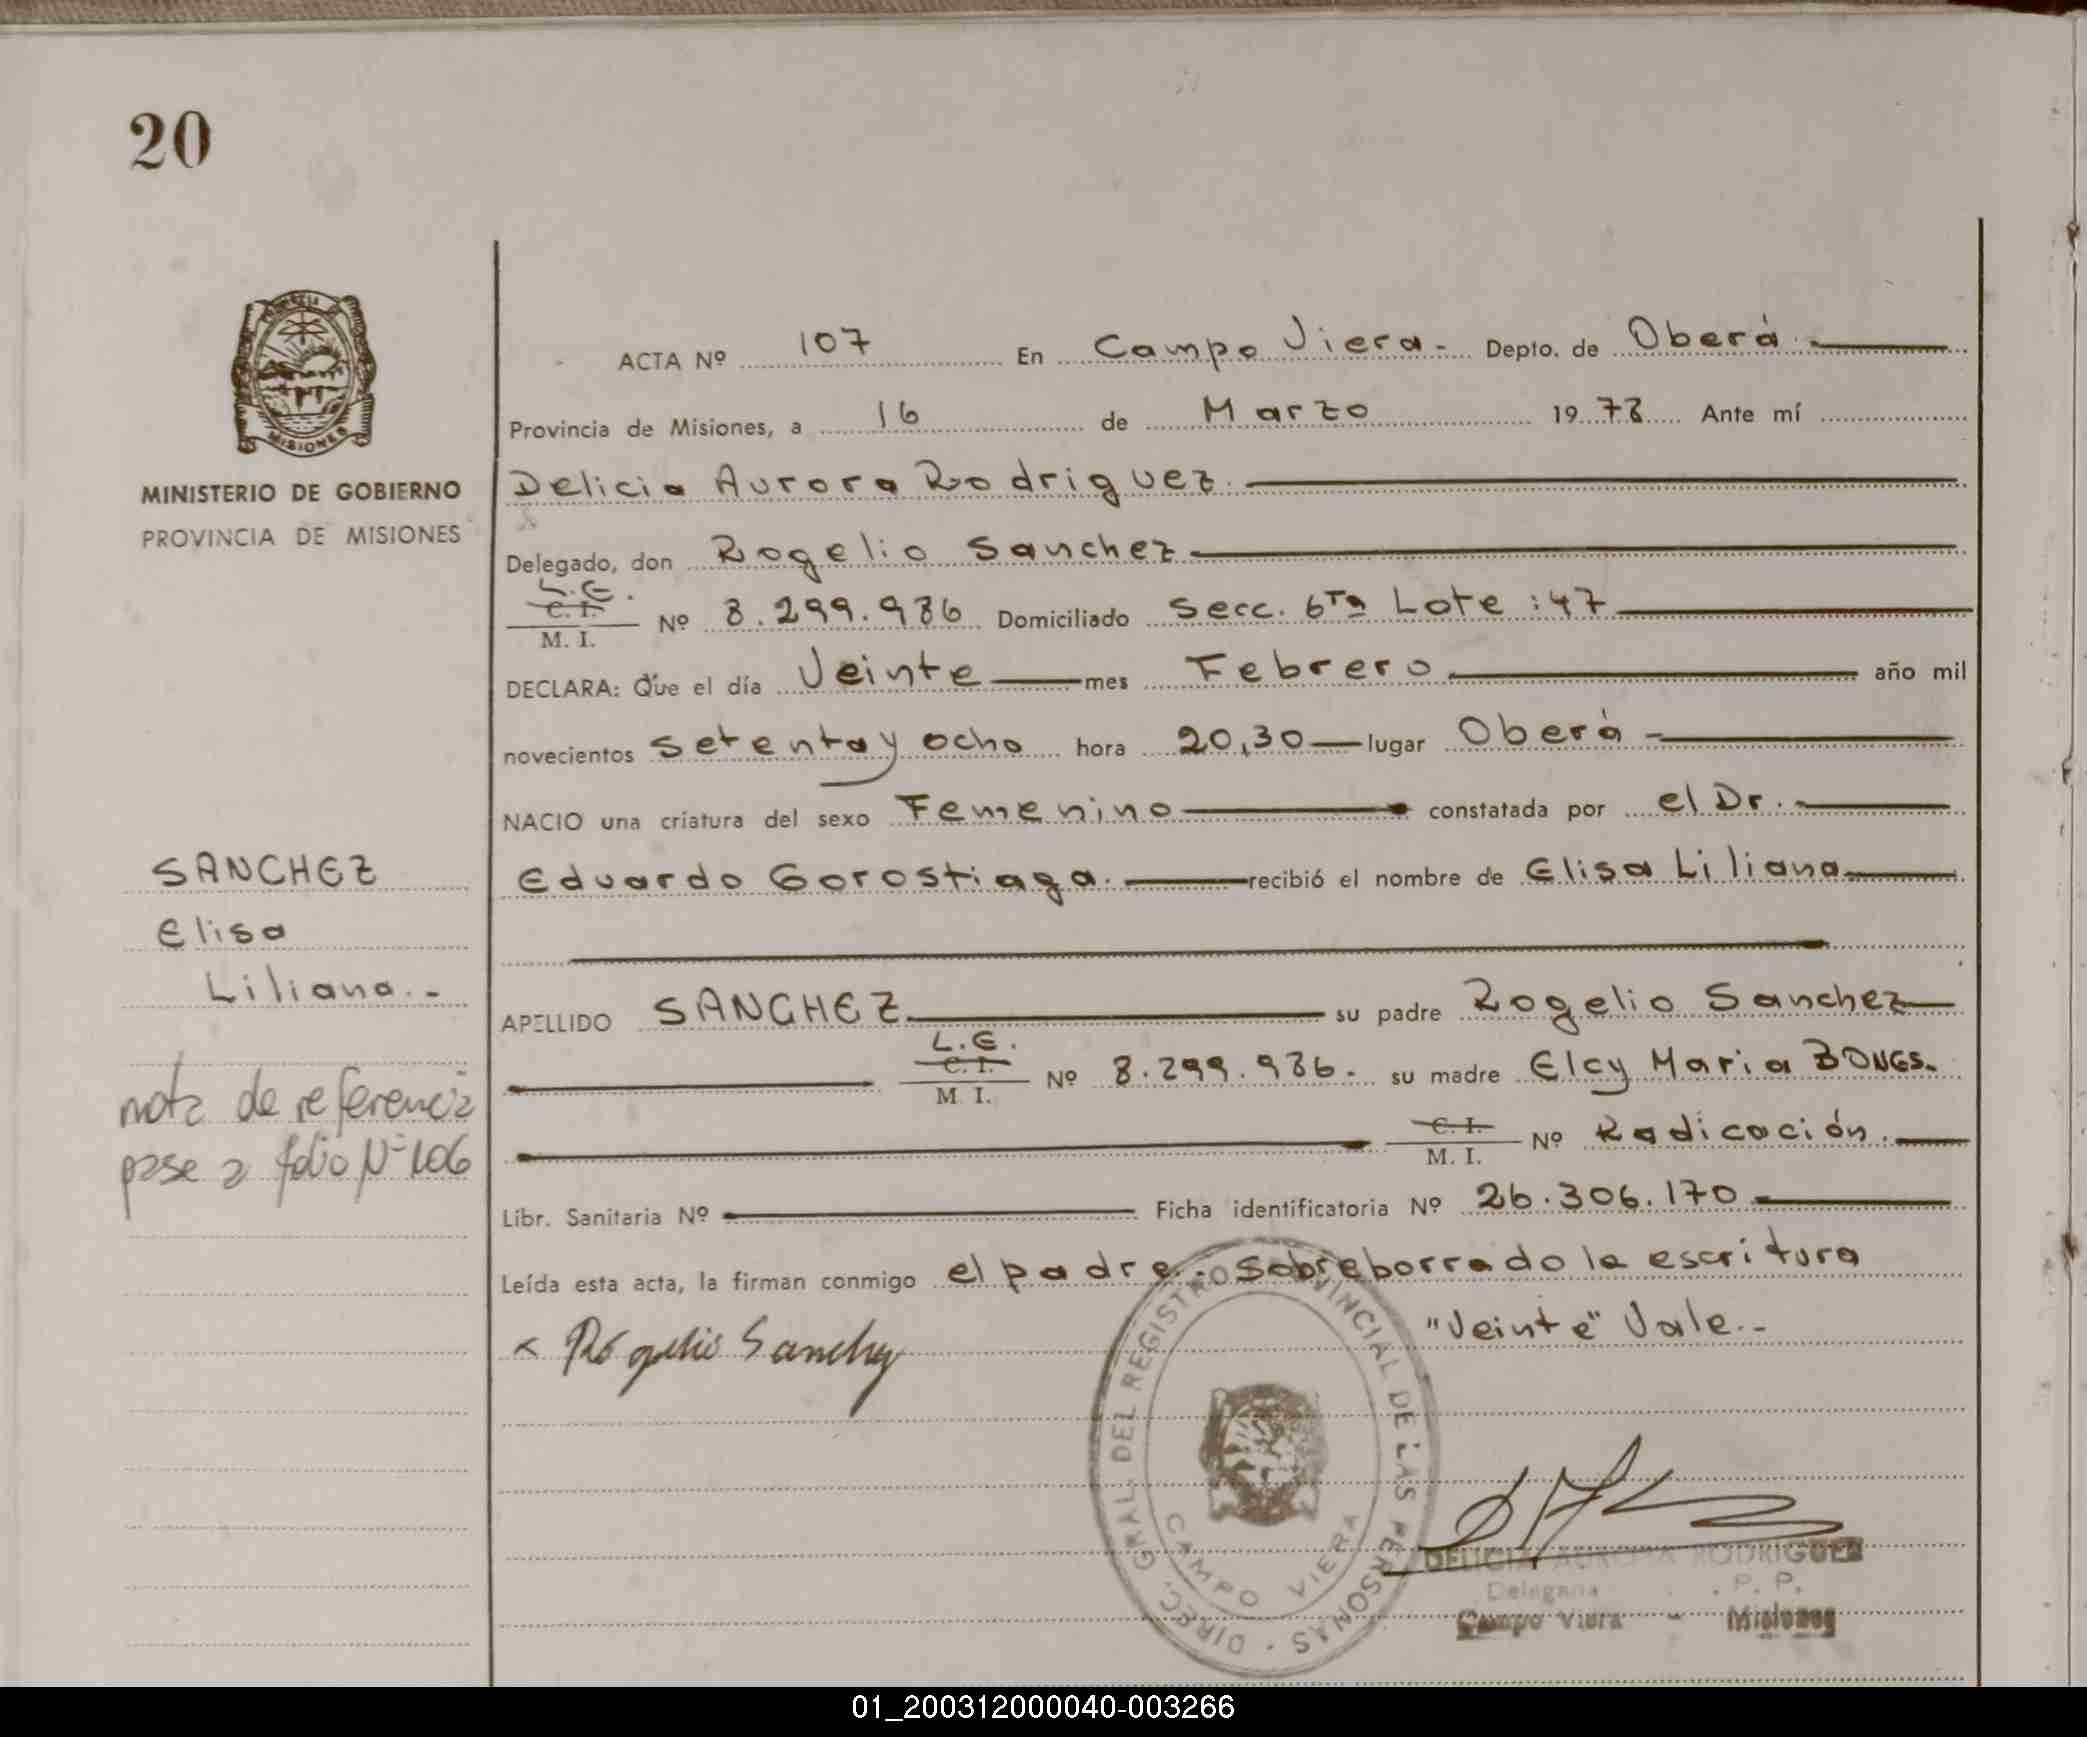 20
MISIONES
MINISTERIO DE GOBIERNO
PROVINCIA DE MISIONES
ACTA Nº 107 En Campo Viera.- Depto. de Oberá.
Provincia de Misiones, a 16 de Marzo 1978 Ante mí
Delicia Aurora Rodriguez.
Delegado, don Rogelio Sanchez
L.E.
C. I.
M. I. Nº 8.299.986 Domiciliado Secc. 6ta Lote: 47
DECLARA: Que el día Veinte mes Febrero año mil
novecientos setenta y ocho hora 20,30 lugar Oberá -
NACIO una criatura del sexo Femenino constatada por el Dr.
Eduardo Gorostiaga. recibió el nombre de Elisa Liliana
APELLIDO SANCHEZ su padre Rogelio Sanchez
L.E.
C. I.
M. I. Nº 8.299.986.- su madre Elcy Maria BONGS.
C. I.
M. I. Nº Radicación.
Libr. Sanitaria Nº Ficha identificatoria Nº 26.306.170
Leída esta acta, la firman conmigo el padre. Sobreborrado la escritura
"Veinte" Vale.-
x Rogelio Sanchez
SANCHEZ
Elisa
Liliana.-
nota de referencia
pase a folio Nº 106
DIREC. GRAL. DEL REGISTRO PROVINCIAL DE LAS PERSONAS
CAMPO VIERA
DELICIA AURORA RODRIGUEZ
Delegada P. P.
Campo Viera - Misiones
01_200312000040-003266